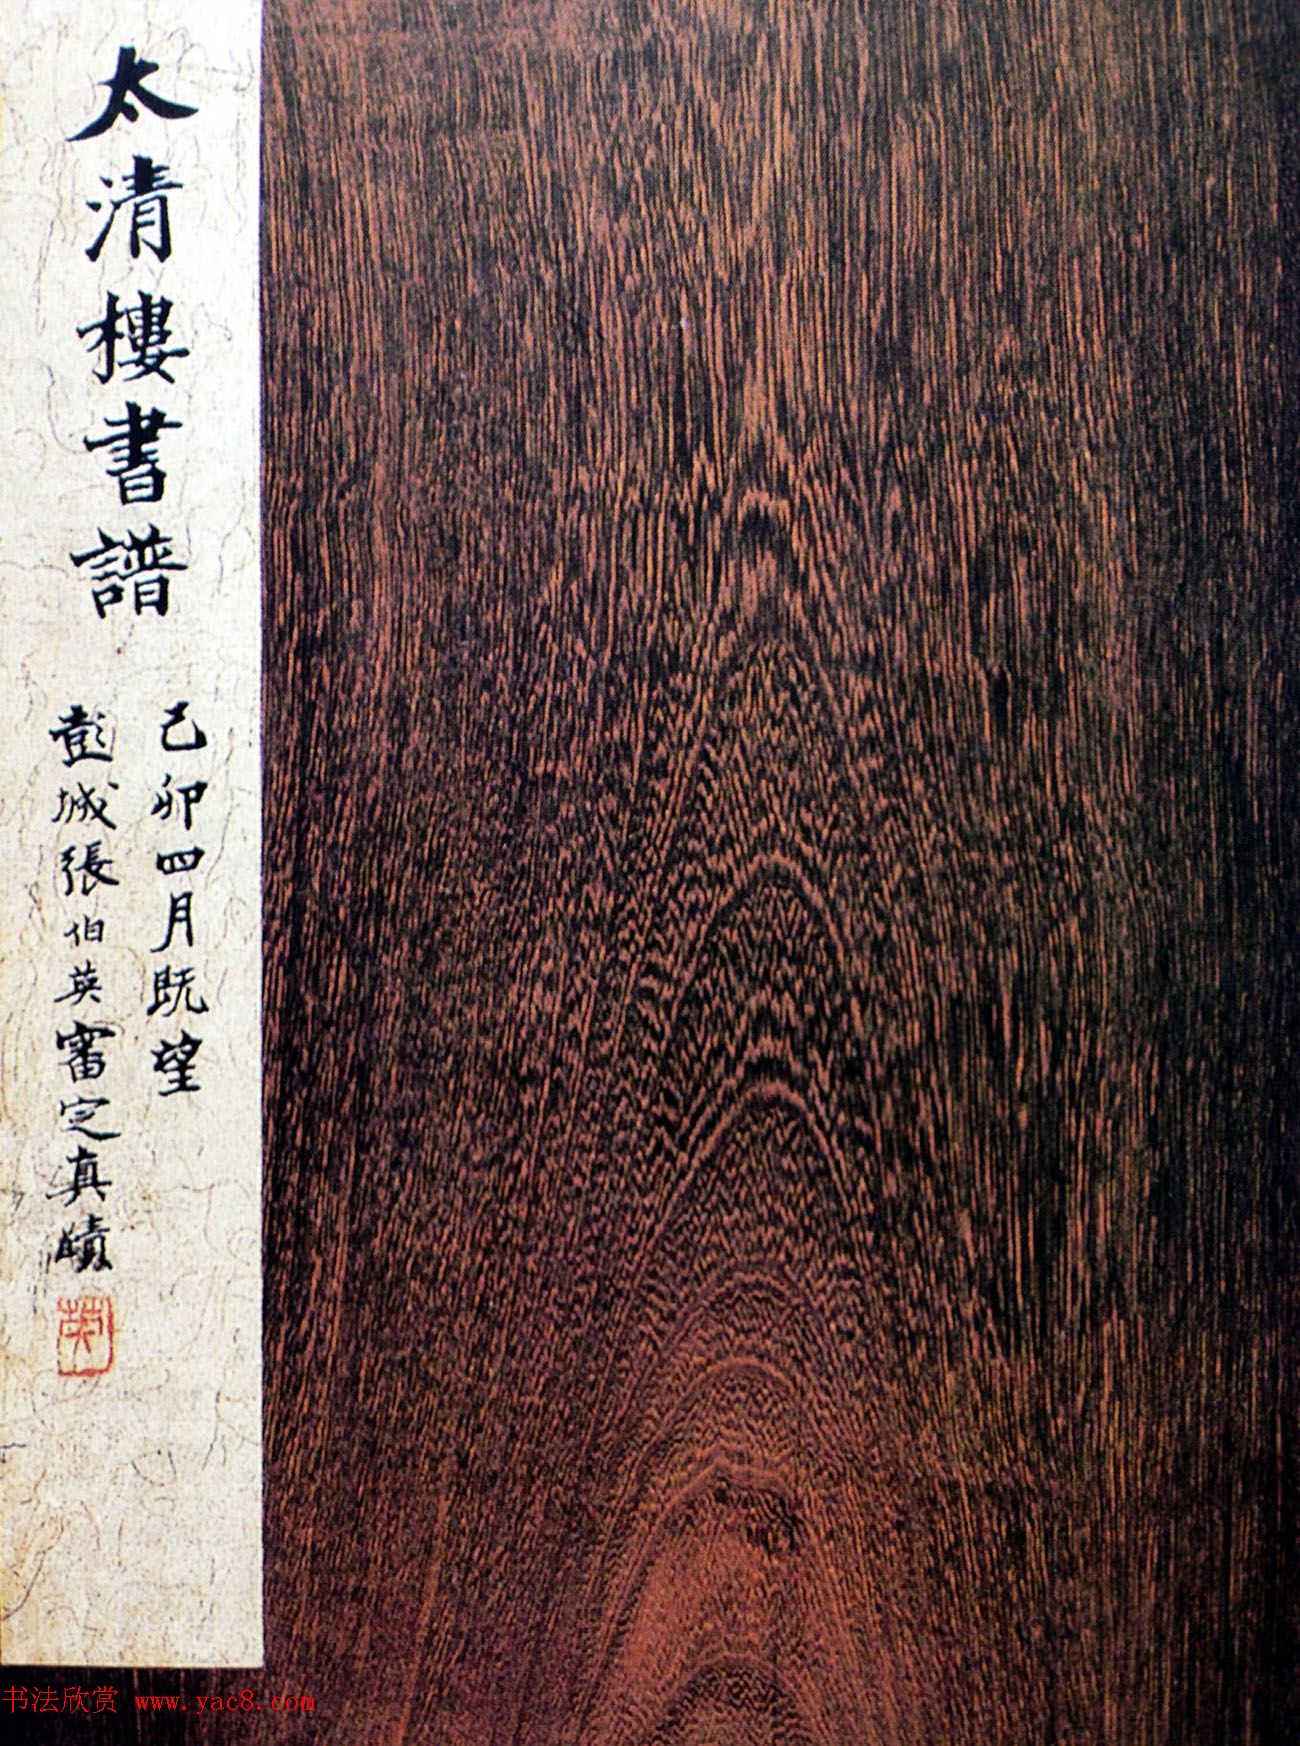 太清樓書譜
己卯四月既望
彭城張伯英審定真蹟
英
书法欣赏 www.yac8.com